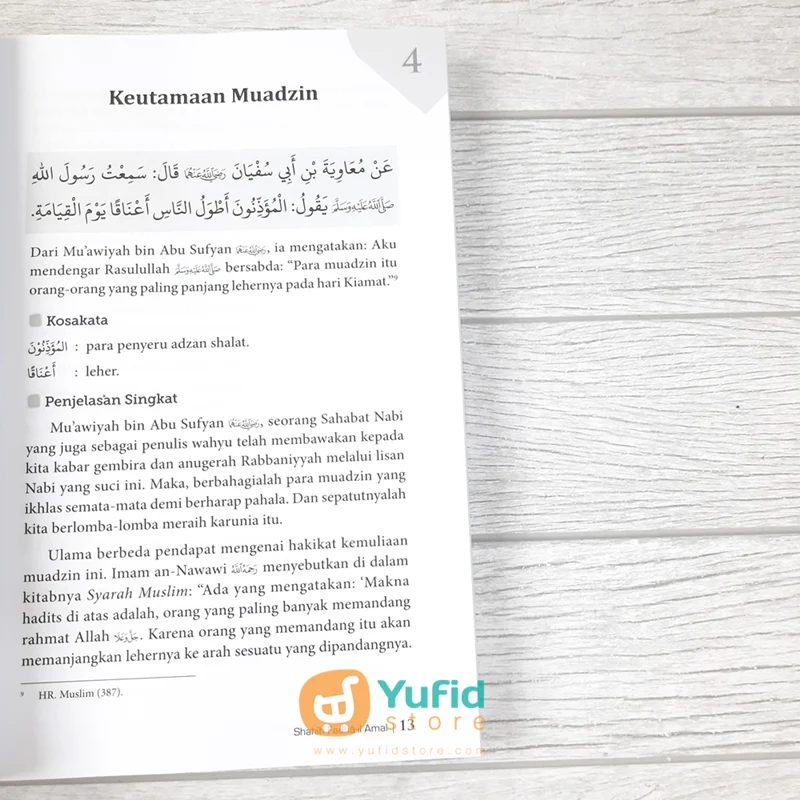 4
Keutamaan Muadzin
عَنْ مُعَاوِيَةَ بْنِ أَبِي سُفْيَانَ رَضِيَ اللهُ عَنْهُمَا قَالَ: سَمِعْتُ رَسُولَ اللهِ
صَلَّى اللهُ عَلَيْهِ وَسَلَّمَ يَقُولُ: الْمُؤَذِّنُونَ أَطْوَلُ النَّاسِ أَعْنَاقًا يَوْمَ الْقِيَامَةِ.
Dari Mu'awiyah bin Abu Sufyan رَضِيَ اللهُ عَنْهُمَا, ia mengatakan: Aku
mendengar Rasulullah صَلَّى اللهُ عَلَيْهِ وَسَلَّمَ bersabda: “Para muadzin itu
orang-orang yang paling panjang lehernya pada hari Kiamat.”⁹
Kosakata
الْمُؤَذِّنُوْنَ : para penyeru adzan shalat.
أَعْنَاقًا : leher.
Penjelasan Singkat
Mu'awiyah bin Abu Sufyan رَضِيَ اللهُ عَنْهُمَا, seorang Sahabat Nabi
yang juga sebagai penulis wahyu telah membawakan kepada
kita kabar gembira dan anugerah Rabbaniyyah melalui lisan
Nabi yang suci ini. Maka, berbahagialah para muadzin yang
ikhlas semata-mata demi berharap pahala. Dan sepatutnyalah
kita berlomba-lomba meraih karunia itu.
Ulama berbeda pendapat mengenai hakikat kemuliaan
muadzin ini. Imam an-Nawawi رَحِمَهُ اللهُ menyebutkan di dalam
kitabnya Syarah Muslim: “Ada yang mengatakan: ‘Makna
hadits di atas adalah, orang yang paling banyak memandang
rahmat Allah جَلَّ وَعَلَا. Karena orang yang memandang itu akan
memanjangkan lehernya ke arah sesuatu yang dipandangnya.
⁹ HR. Muslim (387).
Yufid
store
Amal | 13
www.yufidstore.com